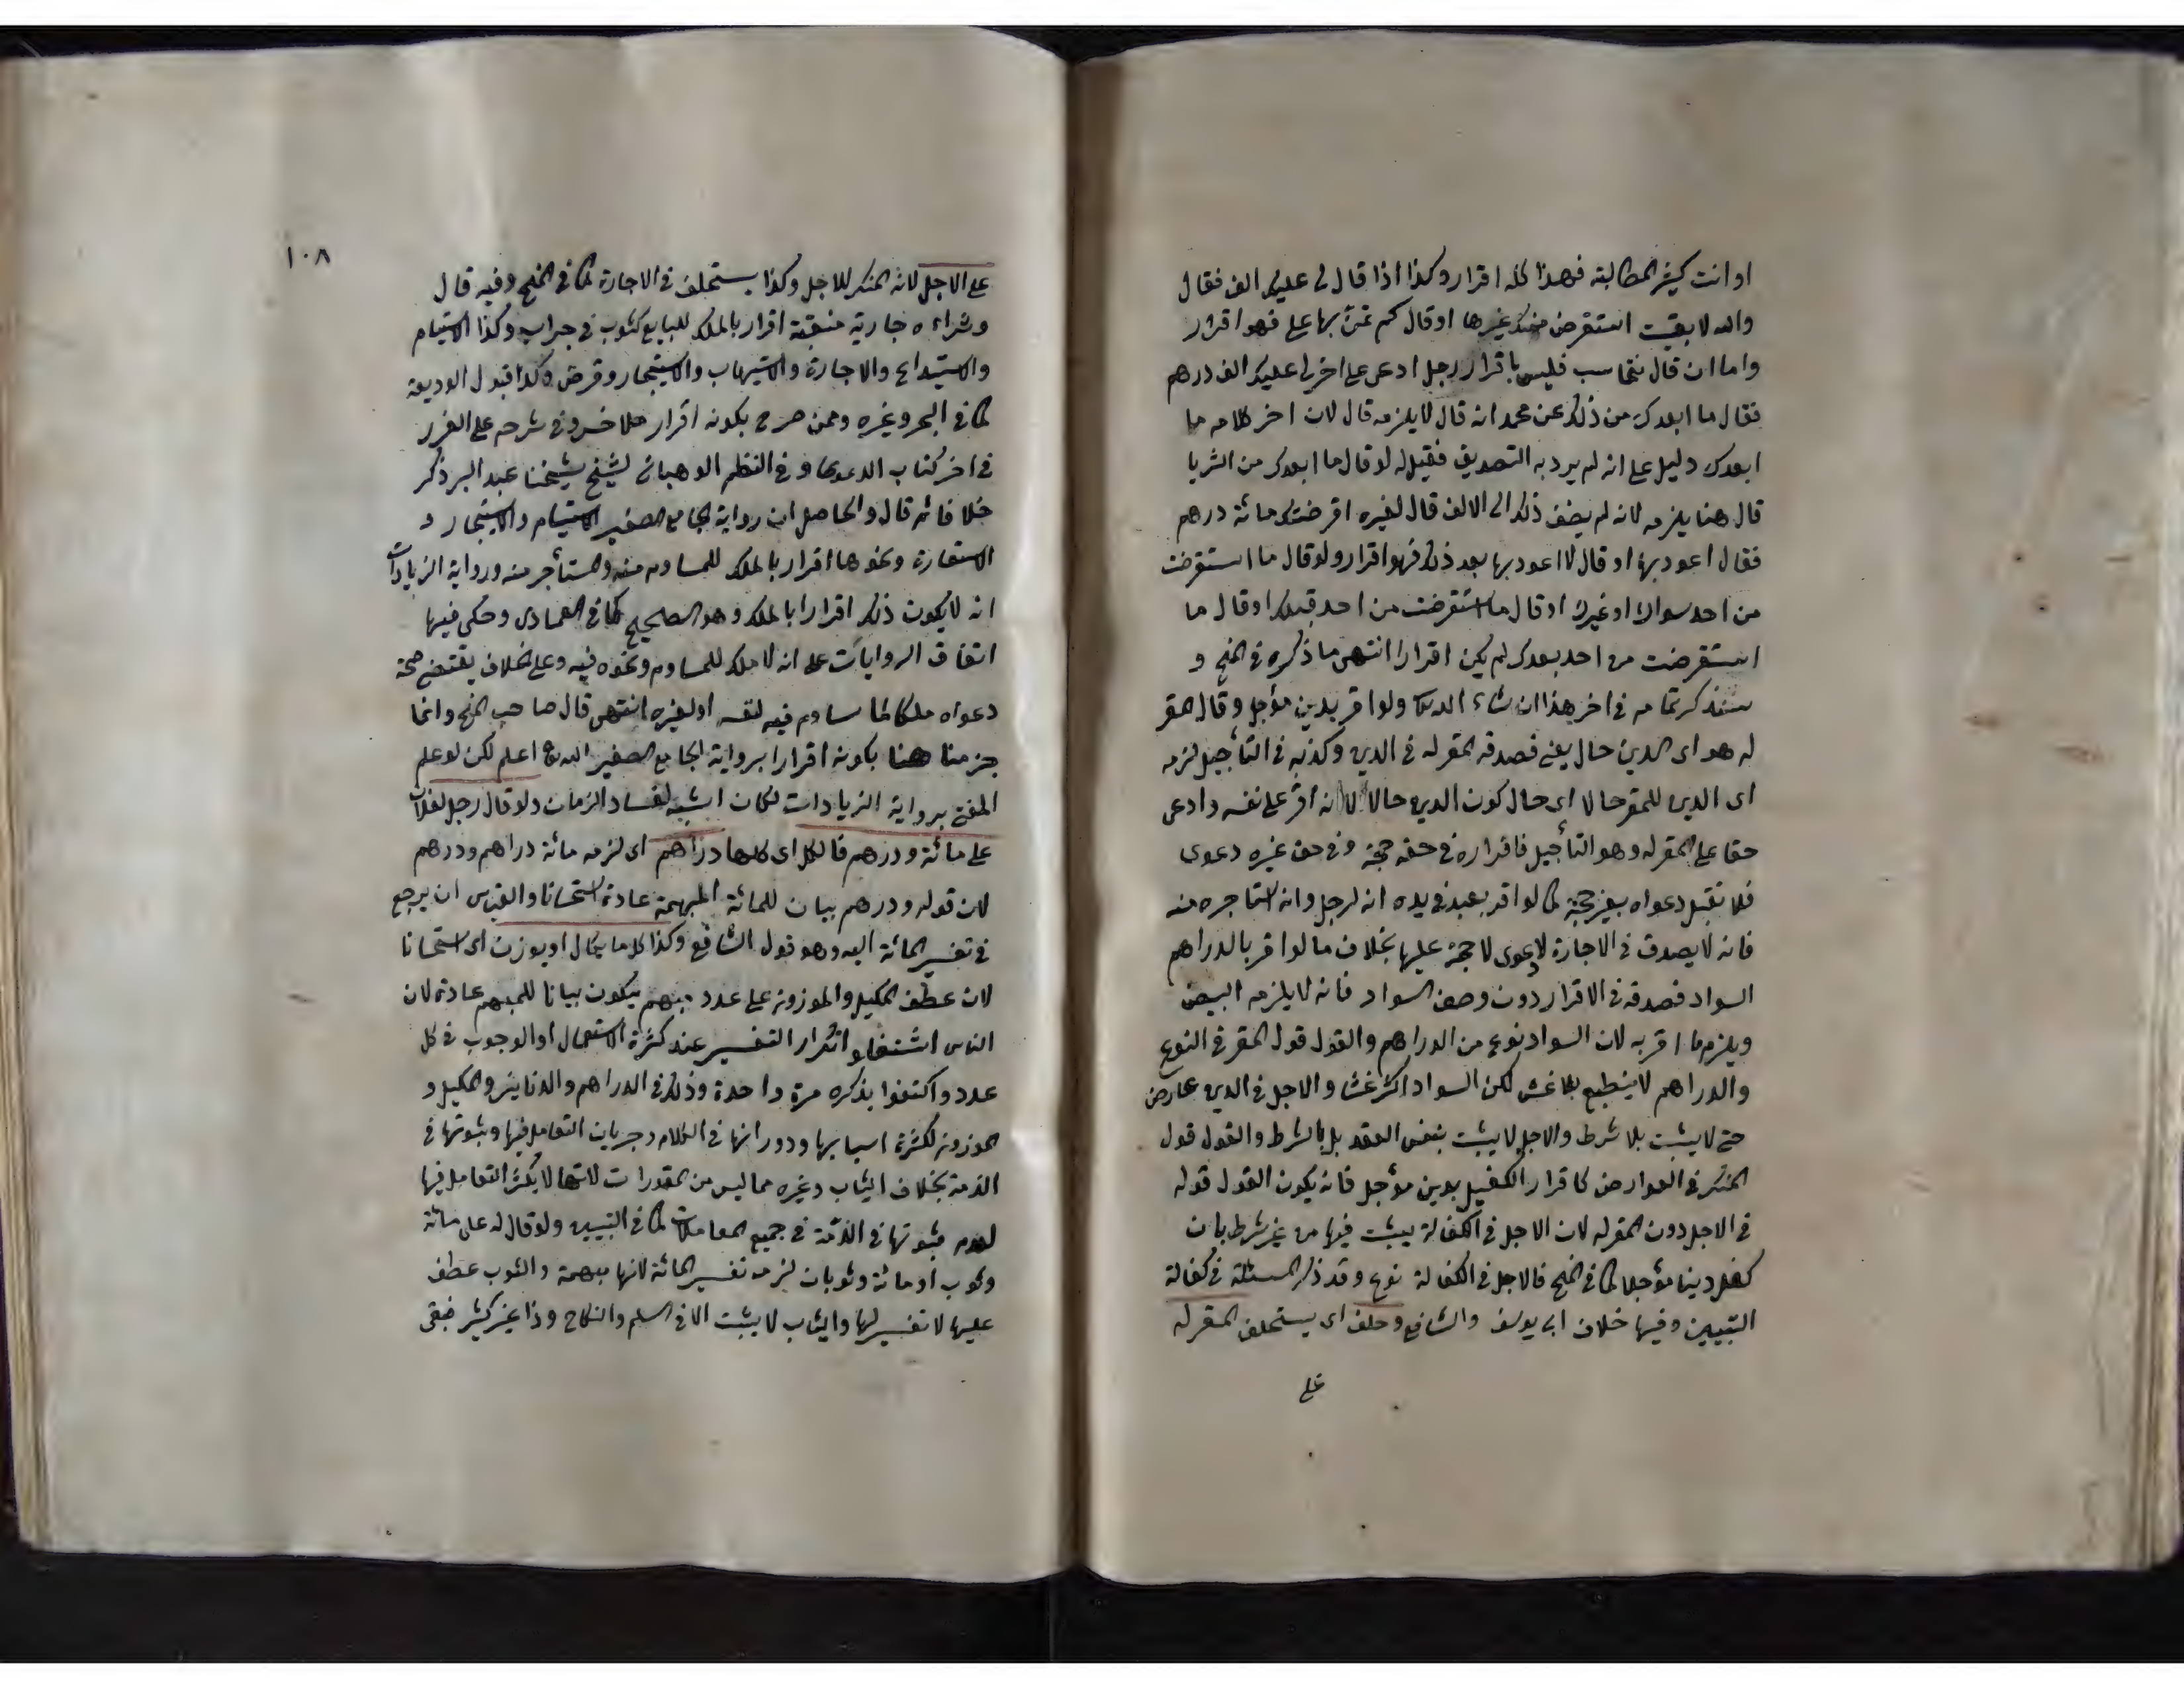 او انت كثير المطالبة فهذا كله اقرار وكذا اذا قال لى عليك الف فقال
والله لا بقيت استقرض منك غيرها او قال كم تمن بها على فهو اقرار
واما ان قال نتحاسب فليس باقرار رجل ادعى على اخر لى عليك الف درهم
فقال ما ابعدك من ذلك عن محمد انه قال لا يلزمه قال لان اخر كلامه ما
ابعدك دليل على انه لم يرد به التصديق فقيل له لو قال ما ابعدك من الثريا
قال هنا يلزمه لانه لم يضف ذلك الى الالف قال لغيره اقرضتك مائة درهم
فقال اعود بها او قال لا اعود بها بعد ذلك فهو اقرار ولو قال ما استقرضت
من احد سواك او غيرك او قال ما استقرضت من احد قبلك او قال ما
استقرضت من احد بعدك لم يكن اقرارا انتهى ما ذكره فى المنح و
سنذكر تمامه فى اخر هذا ان شاء الله تعالى ولو اقر بدين مؤجل وقال المقر
له هو اى الدين حال يعنى فصدقه المقر له فى الدين وكذبه فى التأجيل لزمه
اى الدين للمقر حالا اى حال كون الدين حالا لانه اقر على نفسه وادعى
حقا على المقر له وهو التأجيل فاقراره فى حقه حجة وفى حق غيره دعوى
فلا تقبل دعواه بغير حجة كما لو اقر بعبد فى يده انه لرجل وانه استأجره منه
فانه لا يصدق فى الاجارة لدعوى لا حجة عليها بخلاف ما لو اقر بالدراهم
السواد فصدقه فى الاقرار دون وصف السواد فانه لا يلزمه البيض
ويلزم ما اقر به لان السواد نوع من الدراهم والقول قول المقر فى النوع
والدراهم لا ينطبع بلا غش لكن السواد اكثر غشا والاجل فى الدين عارض
حتى لا يثبت بلا شرط والاجل لا يثبت بنفس العقد بل بالشرط والقول قول
المنكر فى العوارض كاقرار الكفيل بدين مؤجل فانه يكون القول قوله
فى الاجل دون المقر له لان الاجل فى الكفالة يثبت فيها من غير شرط بان
كفل دينا مؤجلا كما فى المنح فالاجل فى الكفالة نوع وقد ذكر المسئلة فى كفالة
التبيين وفيها خلاف ابى يوسف والشافعى وحلف اى يستحلف المقر له
على
١٠٨
على الاجل لانه المنكر للاجل وكذا يستحلف فى الاجارة كما فى المنح وفيه قال
وشراءه جارية متنقبة اقرار بالملك للبايع كثوب فى جراب وكذا الاستيام
والاستيداع والاجارة والاستيهاب والاستيجار وقرض وكذا قبول الوديعة
كما فى البحر وغيره وممن صرح بكونه اقرار ملا خسرو فى شرحه على الغرر
فى اخر كتاب الدعوى وفى النظم الوهبانى لشيخ شيخنا عبد البر ذكر
خلافا ثم قال والحاصل ان رواية الجامع الصغير الاستيام والاستيجار و
الاستعارة ونحوها اقرار بالملك للمساوم منه والمستأجر منه ورواية الزيادات
انه لا يكون ذلك اقرارا بالملك وهو الصحيح كما فى العمادى وحكى فيها
اتفاق الروايات على انه لا ملك للمساوم ونحوه فيه وعلى الخلاف يقتضى صحة
دعواه ملكا لما ساوم فيه لنفسه او لغيره انتهى قال صاحب المنح وانما
جزمنا هنا بكونه اقرارا برواية الجامع الصغير والله تعالى اعلم لكن لو علم
المفتى برواية الزيادات لكان اشبه لفساد الزمان ولو قال رجل لفلان
على مائة ودرهم فالكل اى كلها دراهم اى لزمه مائة دراهم ودرهم
لان قوله ودرهم بيان للمائة المبهمة عادة استحسانا والقياس ان يرجع
فى تفسير المائة اليه وهو قول الشافعى وكذا كل ما يكال او يوزن اى استحسانا
لان عطف المكيل والموزون على عدد مبهم يكون بيانا للمبهم عادة لان
الناس استثقلوا تكرار التفسير عند كثرة الاستعمال او الوجوب فى كل
عدد واكتفوا بذكره مرة واحدة وذلك فى الدراهم والدنانير والمكيل و
الموزون لكثرة اسبابها ودورانها فى الكلام وجريان التعامل فيها وثبوتها فى
الذمة بخلاف الثياب وغيره مما ليس من المقدرات لانها لا يكثر التعامل فيها
لعدم ثبوتها فى الذمة فى جميع المعاملات كما فى التبيين ولو قال له على مائة
وثوب او مائة وثوبان لزمه تفسير المائة لانها مبهمة والثوب عطف
عليها لا تفسير لها والثياب لا يثبت الا فى السلم والنكاح وذا غير كثير فبقى